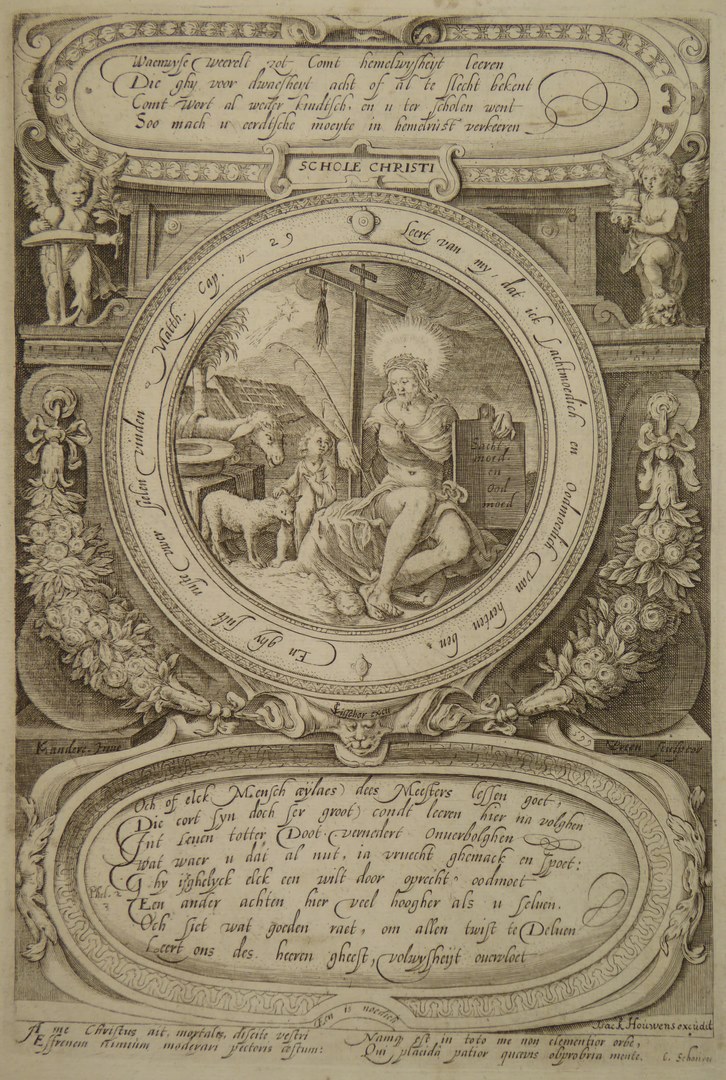 Waenwyse weerelt zot Comt hemelwysheyt leeren
Die ghy voor dwaesheyt acht of al te slecht bekent
Comt Wort al weder kindtsch, en u ter scholen went
Soo mach u eerdtsche moeyte in hemelrust verkeeren
SCHOLE CHRISTI
Leert van my, dat ick Sachtmoedich en Oodmoedich van herten ben
En ghy sult ruste uwer sielen vinden Matth. Cap. 11 29
Sacht
moed
en
Ood
moed
K. mander. Inue
Och of elck Mensch (eylaes) dees Meesters lessen goet,
Die cort syn doch ser groot) condt leeren hier na volghen
Int Leuen totter Doot vernedert Onuerbolghen
Wat waer u dat al nut, ia vruecht ghemack en spoet:
Ghy ijghelyck elck een wilt door oprecht oodmoet
Phil. 2
3
Een ander achten hier veel hoogher als u seluen.
Och siet wat goeden raet, om allen twist te Deluen
Leert ons des heeren gheest, volwysheijt ouervloet
Een is noedich
Iack Houwens excudit
A me Christus ait, mortales, discite vestri
Effrenem nimium moderari pectoris æstum:
Namq est in toto me non clementior orbe,
Qui placida patior quævis obprobria mente.
C. Schoneu